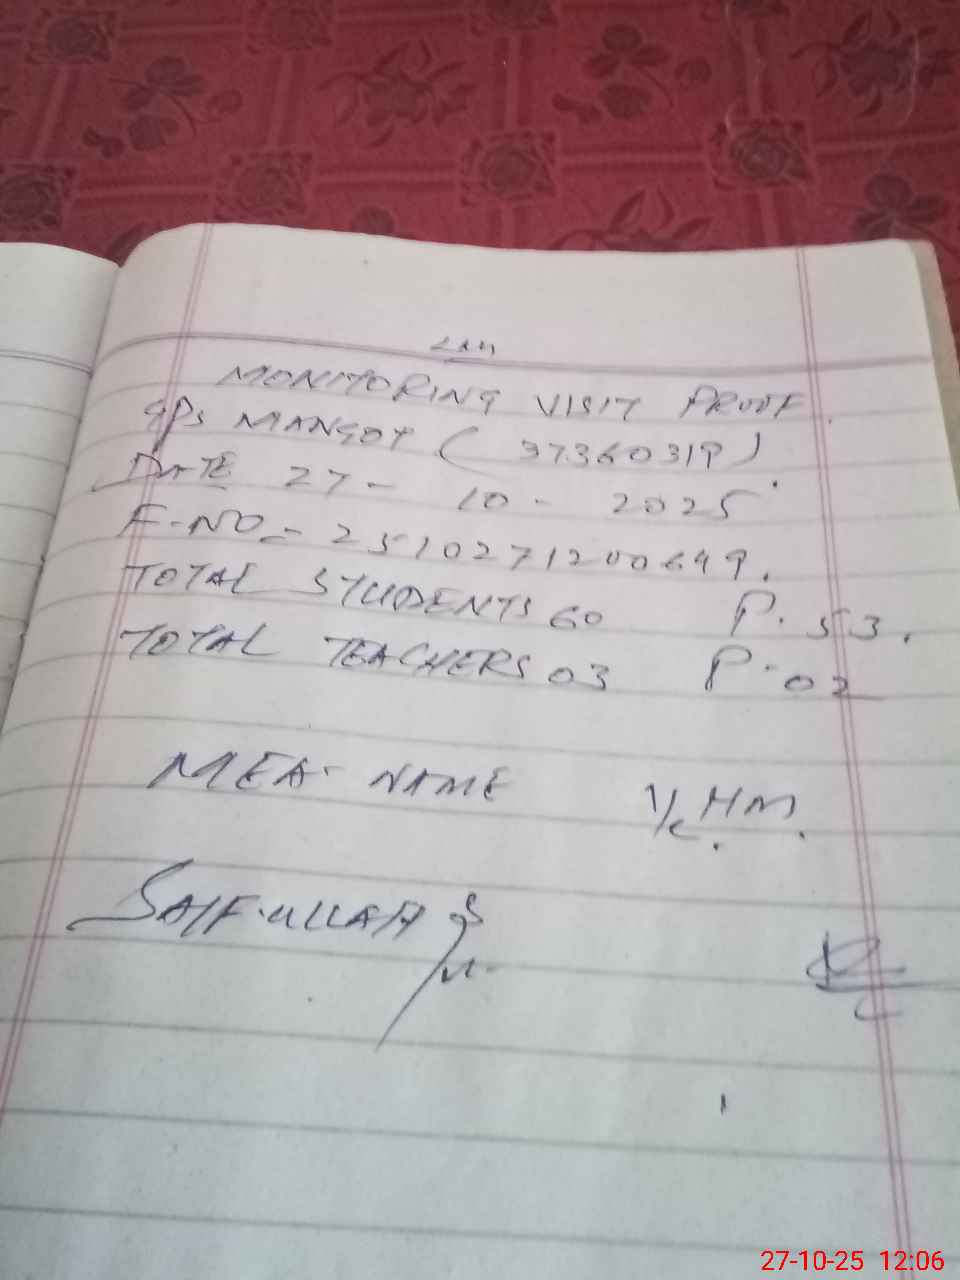 MONITORING VISIT PROOF.
GPS MANGOT (37360319)
DATE 27-10-2025
F-NO = 2510271200649.
TOTAL STUDENTS 60 P. 53.
TOTAL TEACHERS 03 P. 02
MEA. NAME I/c HM.
SAIF.ULLAH
27-10-25 12:06